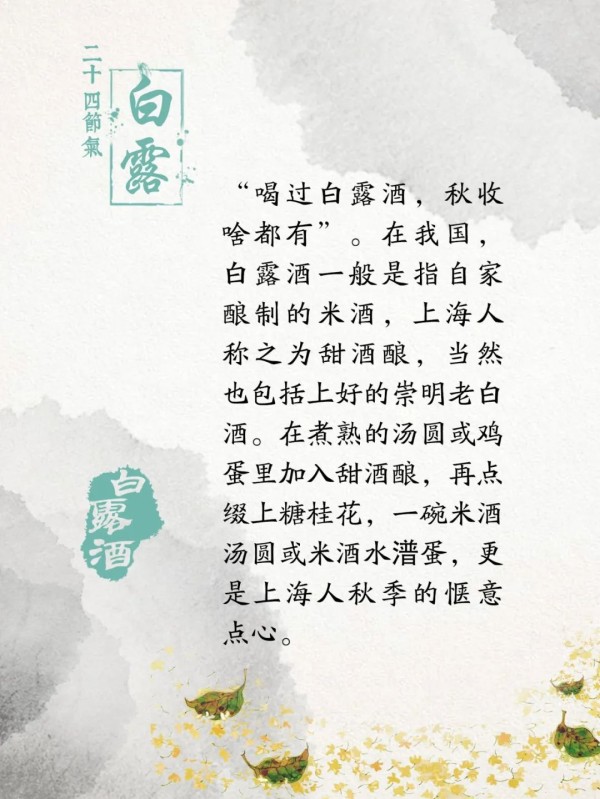 二十四節氣
白露
“喝过白露酒，秋收
啥都有”。在我国，
白露酒一般是指自家
酿制的米酒，上海人
称之为甜酒酿，当然
也包括上好的崇明老白
酒。在煮熟的汤圆或鸡
蛋里加入甜酒酿，再点
缀上糖桂花，一碗米酒
汤圆或米酒水潽蛋，更
是上海人秋季的惬意
点心。
白露酒